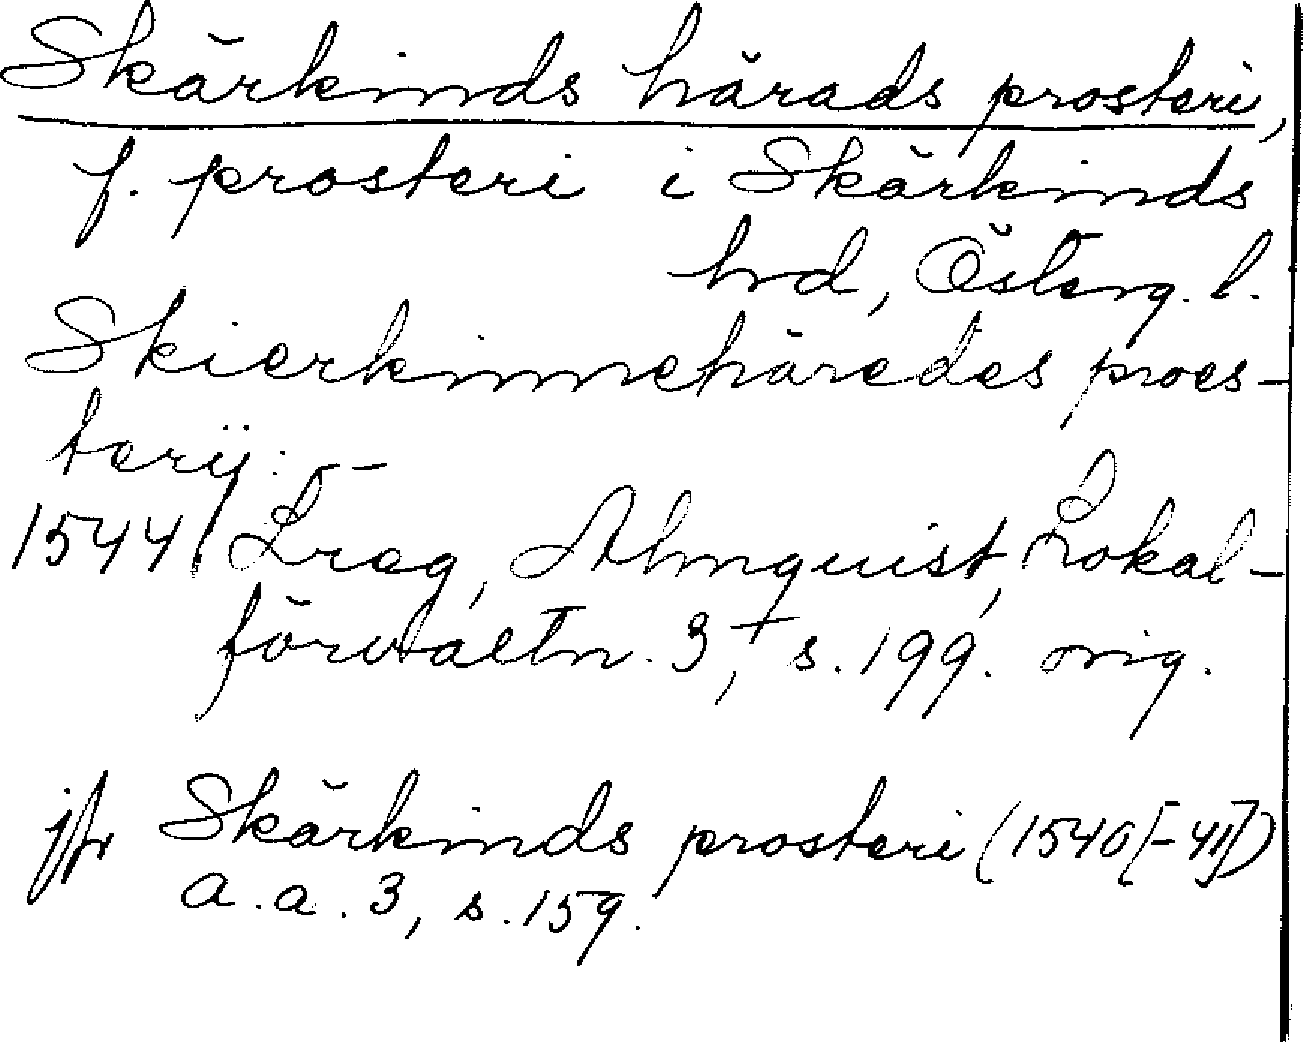 Skärkinds härads prosteri,
f. prosteri i Skärkinds
hrd, Österg. l.
Skierkinnehäredes proes-
terÿ:
1544 Lreg, Almquist, Lokal-
förvaltn. 3, s. 199. orig.
jfr Skärkinds prosteri (1540[-41])
a.a. 3, s. 159.